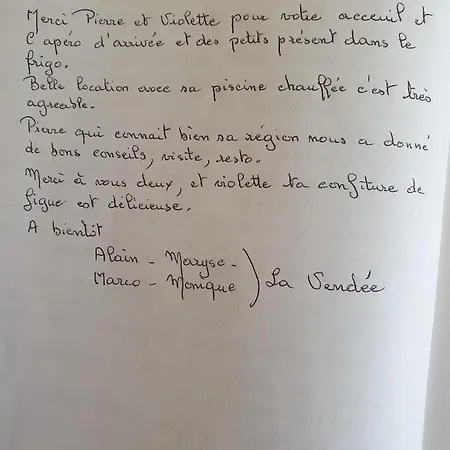 Merci Pierre et Violette pour votre acceuil et
l'apéro d'arrivée et des petits présent dans le
frigo.
Belle location avec sa piscine chauffée c'est très
agreable.
Pierre qui connait bien sa région nous a donné
de bons conseils, visite, resto.
Merci à vous deux, et violette ta confiture de
figue est délicieuse.
A bientôt
Alain - Maryse -
Marco - Monique ) La Vendée